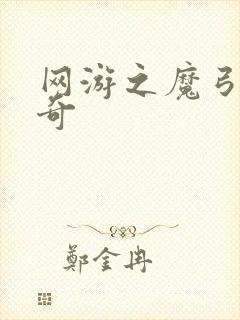 网游之魔弓
奇
鄭金冉